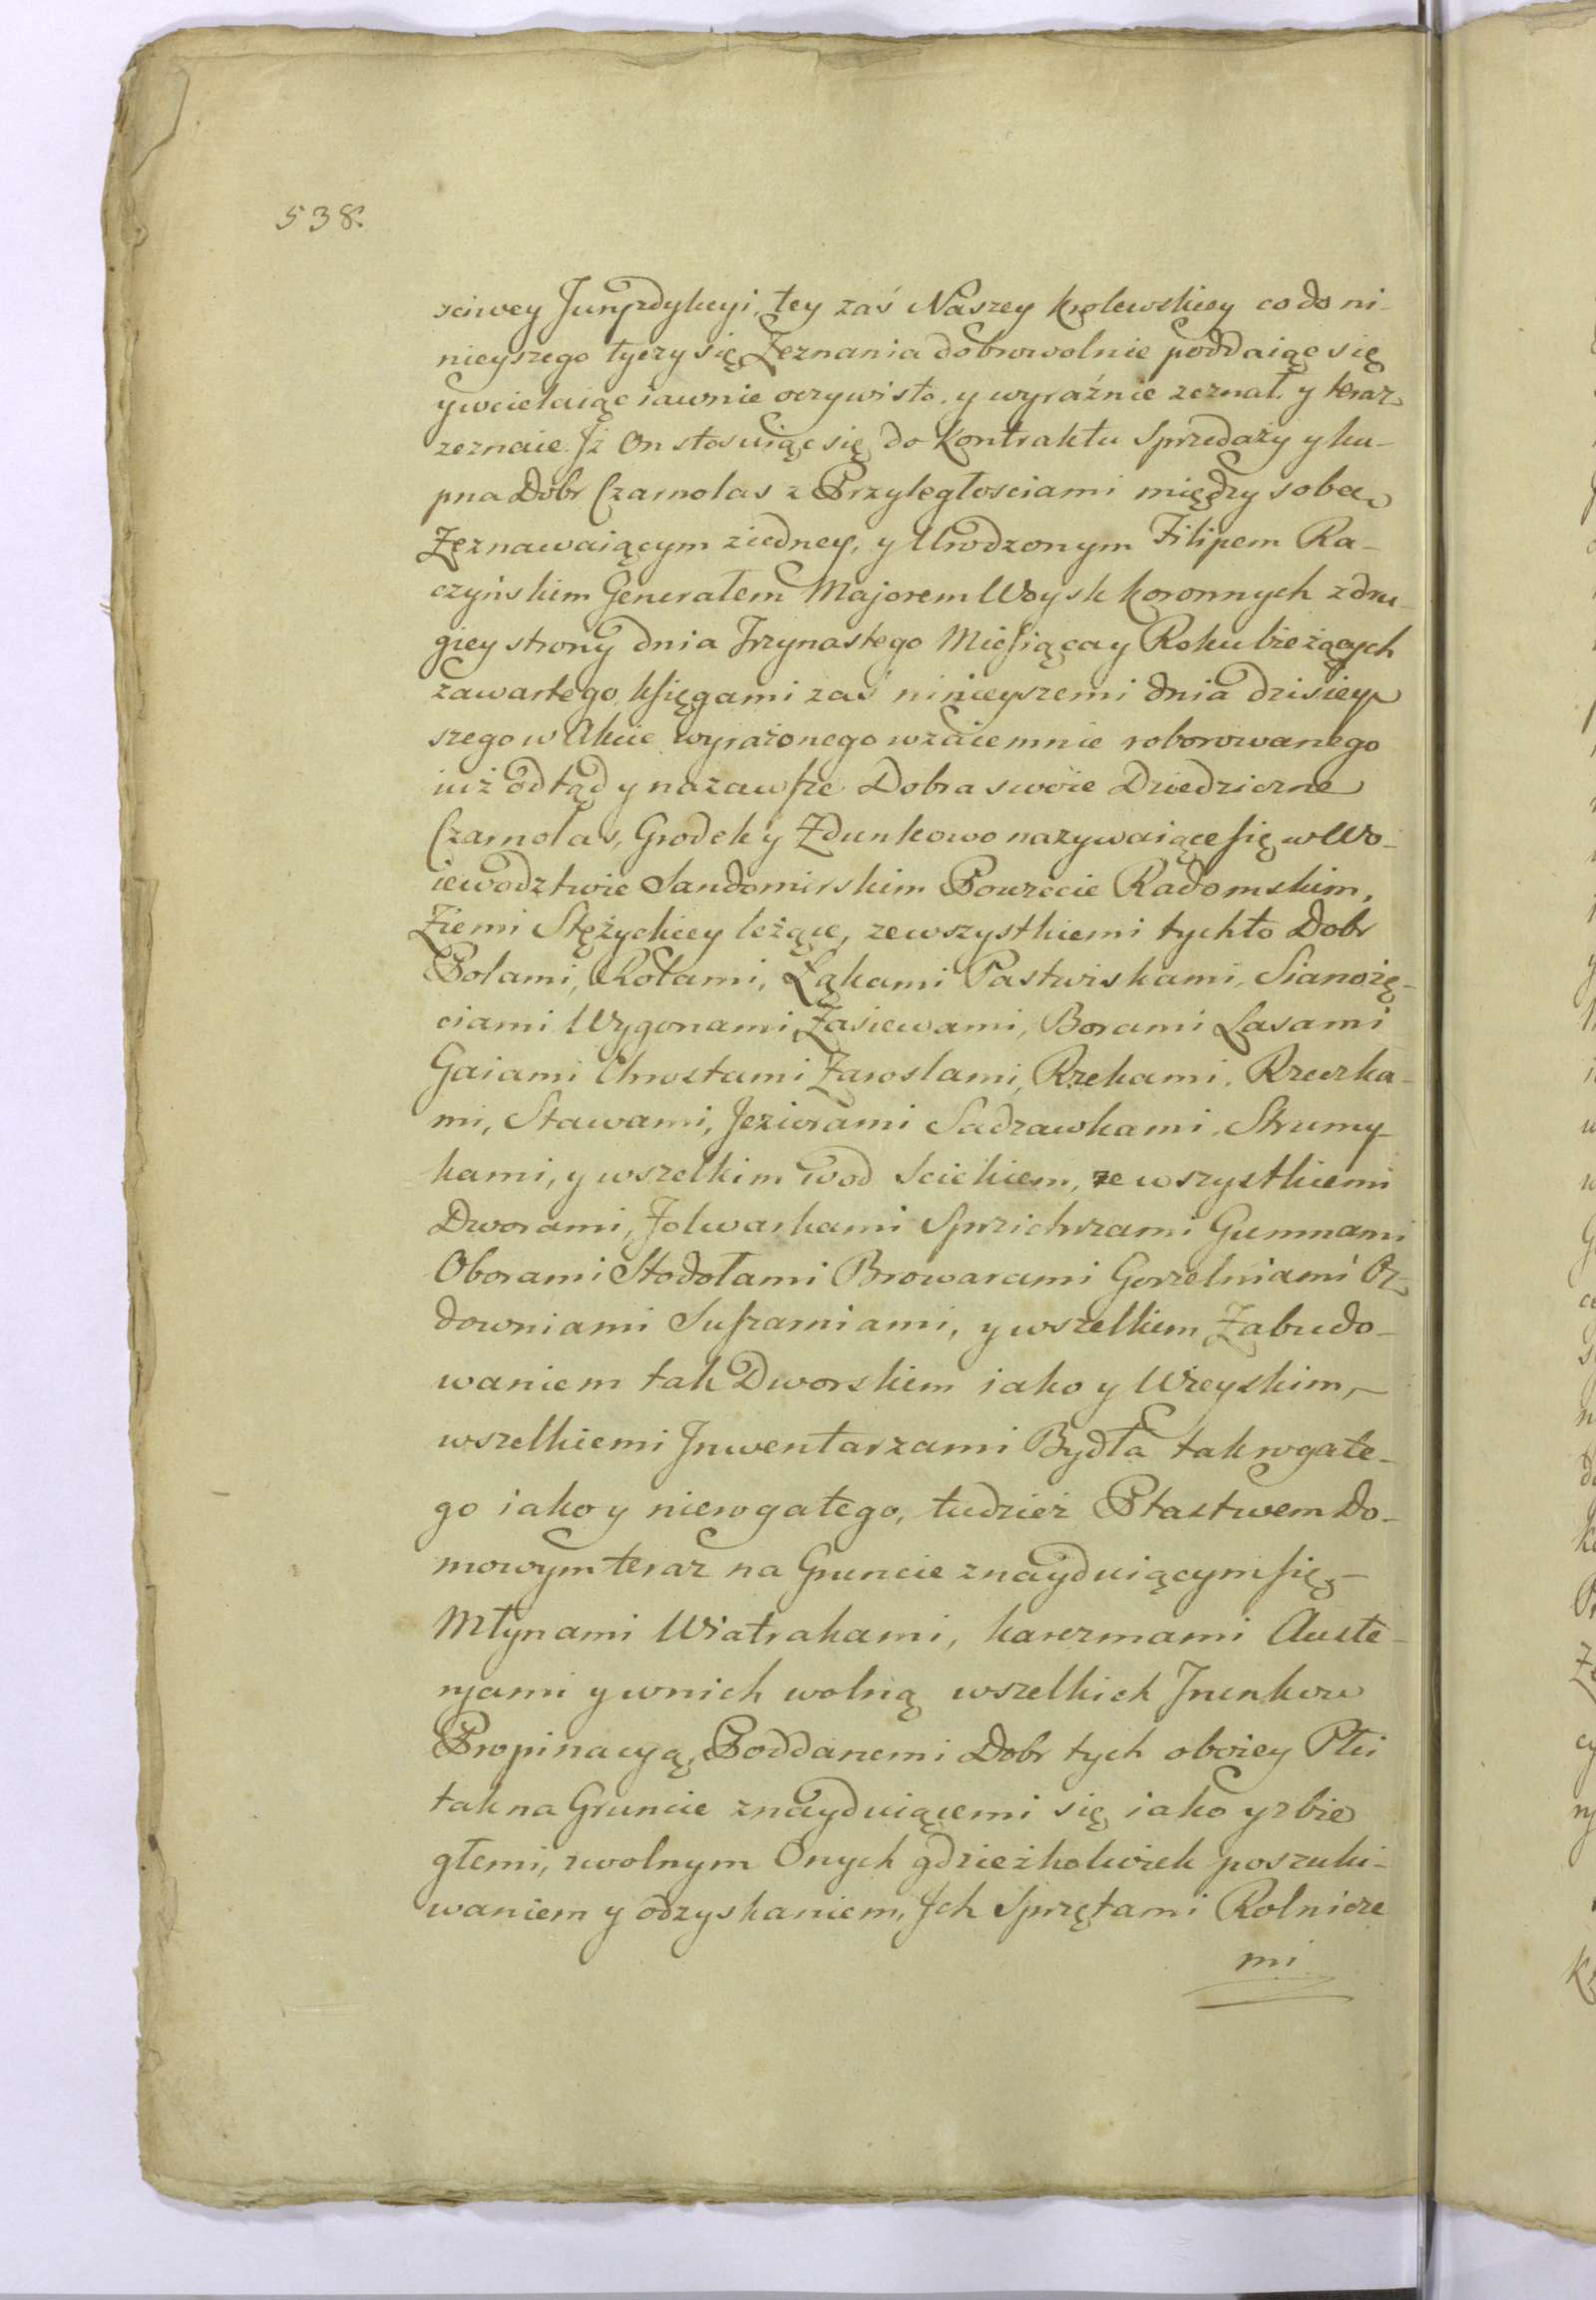 538.
sciwey Juryzdykcyi, tey zaś Naszey Krolewskiey co do ni-
nieyszego tyczy się Zeznania dobrowolnie poddaiąc się
y wcielaiąc iawnie oczywisto y wyraźnie zeznał y teraz
zeznaie Jż On stosuiąc się do Kontraktu Sprzedaży y ku-
pna Dobr Czarnolas z Przyległosciami między sobą
Zeznawaiącym z iedney, y Urodzonym Filipem Ra-
czyńskim Generałem Majorem Woysk Koronnych z dru-
giey strony dnia Trzynastego Miesiąca y Roku bieżących
zawartego, księgami zaś ninieyszemi dnia dzisiey
szego w Akcie wyrażonego wzaiemnie roborowanego
iuż odtąd y nazawsze Dobra swoie Dziedziczne
Czarnolas, Grodek y Zdunkowo nazywaiące się w Wo-
iewodztwie Sandomirskim Powiecie Radomskim,
Ziemi Stężyckiey leżące, ze wszystkiemi tychto Dobr
Polami, Rolami, Łąkami Pastwiskami, Sianożę-
ciami Wygonami, Zasiewami, Borami Lasami
Gaiami Chrostami Zaroslami, Rzekami, Rzeczka-
mi, Stawami, Jeziorami Sadzawkami, Strumy-
kami, y wszelkim wod sciekiem, ze wszystkiemi
Dworami, Folwarkami Spichrzami Gumnami
Oborami Stodołami Browarami Gorzelniami Oz-
downiami Suszarniami, y wszelkiem Zabudo-
waniem tak Dworskiem iako y Wieyskim,
wszelkiemi Jnwentarzami Bydła tak rogate-
go iako y nierogatego, tudzież Ptastwem Do-
mowym teraz na Gruncie znayduiącym się
Młynami Wiatrakami, karczmami Auste-
ryami y w nich wolną wszelkich Trunkow
Propinacyą, Poddanemi Dobr tych oboiey Płci
tak na Gruncie znayduiącemi się iako y zbie
głemi, z wolnym Onych gdzieżkolwiek poszuki-
waniem y odzyskaniem, Jch Sprzętami Rolnicze
mi